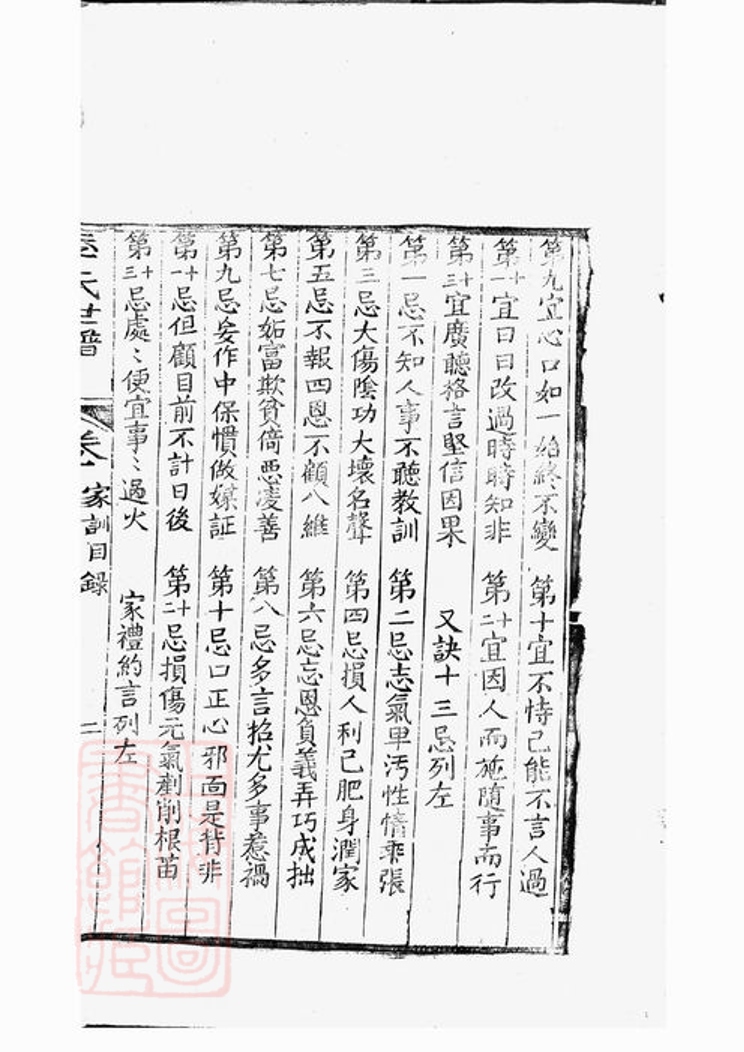 第九宜心口如一始終不變　第十宜不恃己能不言人過
第十一宜日日改過時時知非　第十二宜因人而施隨事而行
第十三宜廣聽格言堅信因果　又訣十三忌列左
第一忌不知人事不聽教訓　第二忌志氣卑污性情乖張
第三忌大傷陰功大壞名聲　第四忌損人利己肥身潤家
第五忌不報四恩不顧八維　第六忌忘恩負義弄巧成拙
第七忌妬富欺貧倚惡凌善　第八忌多言招尤多事惹禍
第九忌妄作中保慣做媒証　第十忌口正心邪面是背非
第十一忌但顧目前不計日後　第十二忌損傷元氣剷削根苗
第十三忌處〻便宜事〻過火　家禮約言列左
氏世譜　卷一　家訓目錄　二